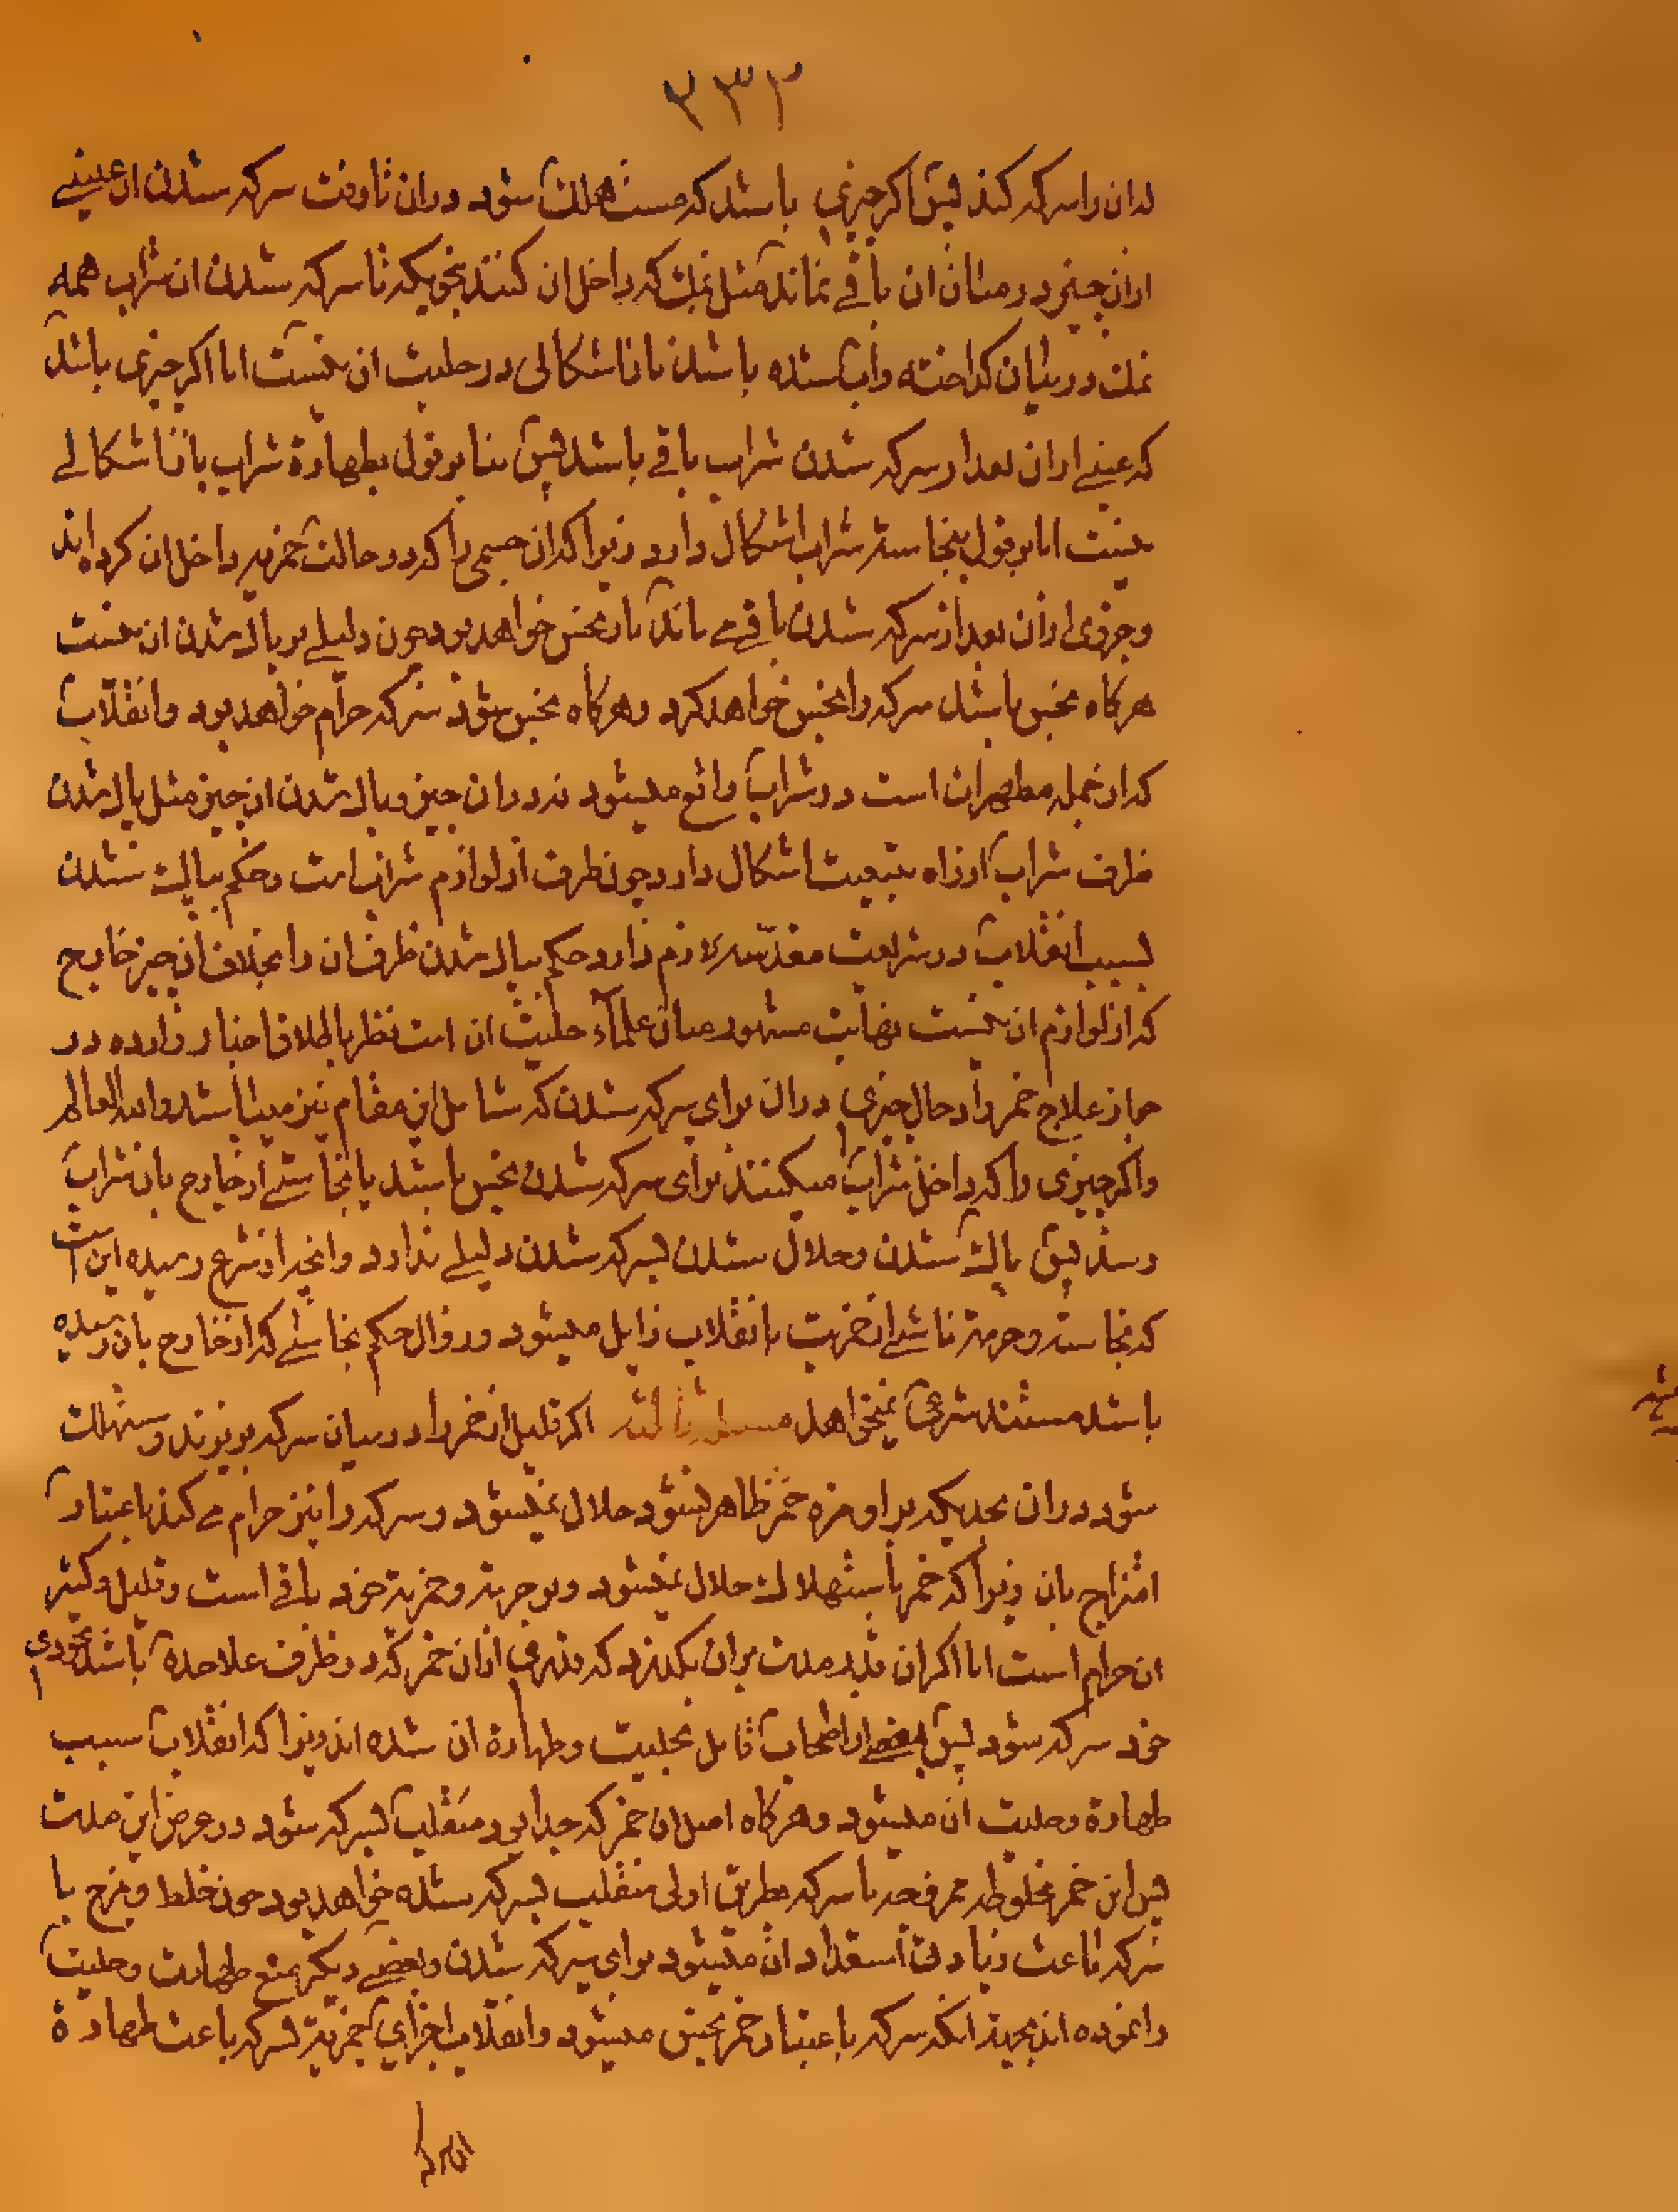 ۲۳۳
که ان را سرکه کند پس اگر چیزی باشد که مستهلک شود در ان تا وقت سرکه شدن ان عینی
از ان چیز در میان ان باقی نماند مثل نمک که داخل ان کنند بنحویکه تا سرکه شدن ان شراب همه
نمک در میان گداخته و اب شده باشد با ان اشکالی در حلیت ان نیست اما اگر چیزی باشد
که عینی از ان بعد از سرکه شدن شراب باقی باشد پس بنا بر قول بطهارة شراب باز اشکالی
نیست اما بر قول بنجاسته شراب اشکال دارد زیرا که ان جسمی را که در حالت خمریه داخل ان کرده اند
و جزوی از ان بعد از سرکه شدن باقی ماند باز نجس خواهد بود چون دلیلی بر پاک شدن ان نیست
هرکاه نجس باشد سرکه را نجس خواهد کرد و هرکاه نجس شود سرکه حرام خواهد بود و انقلاب
که از جمله مطهرات است در شراب واقع میشود نه در ان چیز و پاک شدن ان چیز مثل پاک شدن
ظرف شراب از راه تبعیت اشکال دارد چون ظرف از لوازم شراب است و حکم بپاک شدن
بسبب انقلاب در شریعت مقدسه لازم دارد حکم بپاک شدن ظرف ان را بخلاف ان چیز خارج
که از لوازم ان نیست نهایت مشهور میان علماء حلیت ان است نظر باطلاق اخبار وارده در
جواز علاج خمر و ادخال چیزی در ان برای سرکه شدن که شامل این مقام نیز میباشد والله العالم
و اگر چیزی را که داخل شراب میکنند برای سرکه شدن نجس باشد یا نجاستی از خارج بان شراب
رسد پس پاک شدن و حلال شدن بسرکه شدن دلیلی ندارد و انچه از شرع رسیده این است
که نجاسته و حرمته ناشی از خمریت بانقلاب زایل میشود و زوال حکم نجاستی که از خارج بان رسیده
باشد مستند شرعی میخواهد مسئله ثالثه اگر قلیل از خمر را در میان سرکه بریزند و مستهلک
شود در ان بحدیکه بر او مزه خمر ظاهر نشود حلال نمیشود و سرکه را نیز حرام می کند باعتبار
امتزاج بان زیرا که خمر باستهلاک حلال نمیشود و بر حرمته و خمریته خود باقی است و قلیل و کثیر
ان حرام است اما اگر ان قدر مدت بران بگذرد که قدری از ان خمر که در ظرف علاحده باشد بخودی
خود سرکه شود پس بعضی از اصحاب قایل بحلیت و طهارة ان شده اند زیرا که انقلاب سبب
طهارة و حلیت ان میشود و هرکاه اصل ان خمر که جدا بود منقلب بسرکه شود در عرض این مدت
پس این خمر مخلوط ممزوجه با سرکه بطریق اولی منقلب بسرکه شده خواهد بود چون خلط و مزج با
سرکه باعث زیادتی استعداد ان میشود برای سرکه شدن و بعضی دیگر منع طهارت و حلیت
را نموده اند بجهة انکه سرکه باعتبار خمر نجس میشود و انقلاب اجزای خمریته بسرکه باعث طهارة